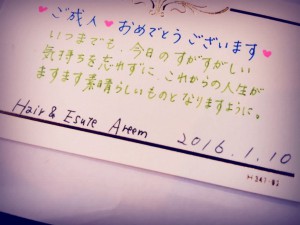 ♥ご成人♥おめでとうございます♥
いつまでも、今日のすがすがしい
気持ちを忘れずに、これからの人生が
ますます素晴らしいものとなりますように。
Hair & Esute Areem 2016.1.10